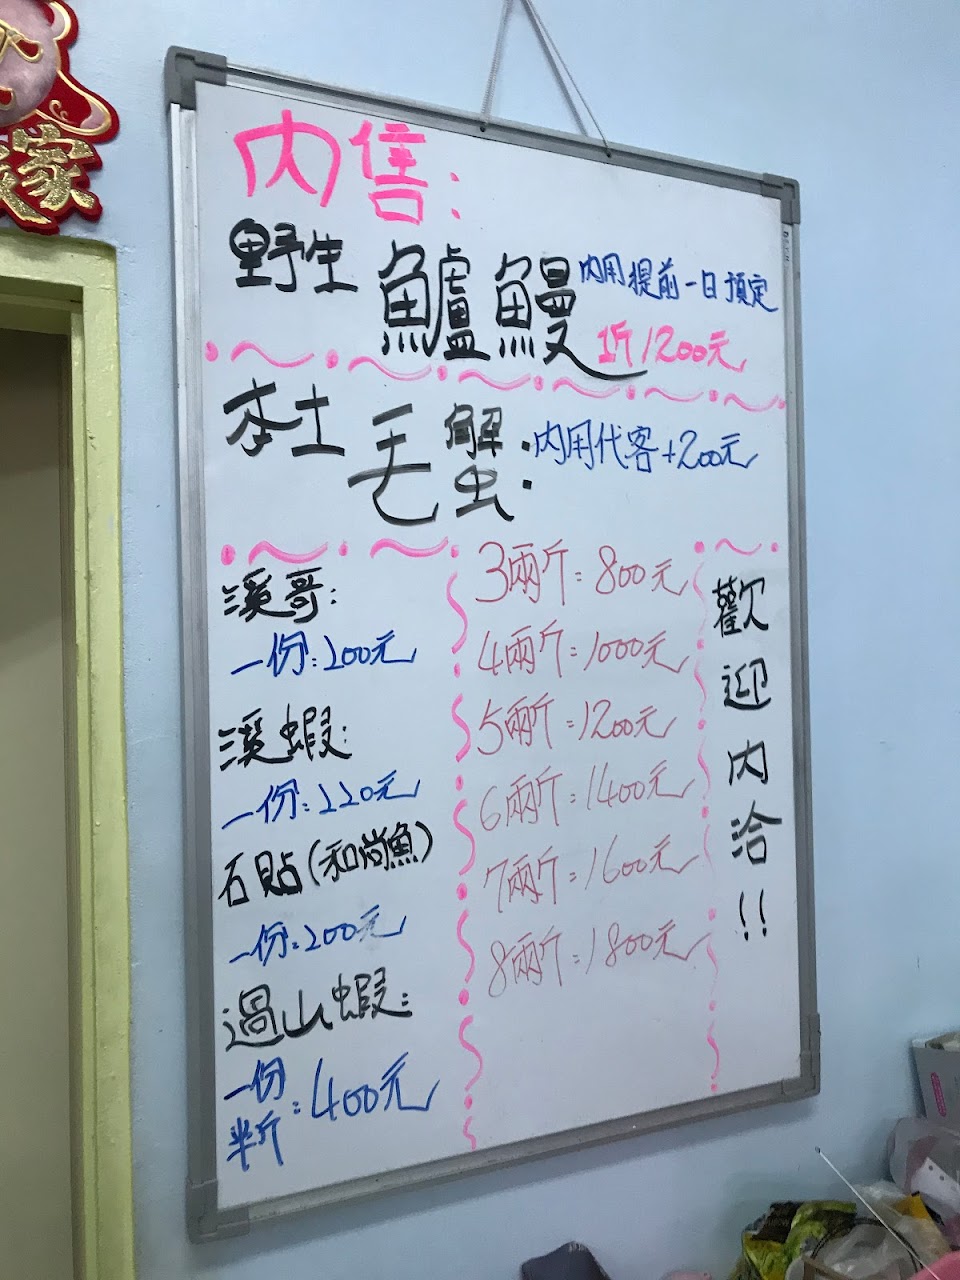 家
內售:
野生 鱸鰻 內用提前一日預定
1斤1200元
本土毛蟹: 內用代客+200元
溪哥:
一份:200元
溪蝦:
一份:220元
石貼(和尚魚)
一份:200元
過山蝦:
一份
半斤:400元
3兩斤:800元
4兩斤:1000元
5兩斤:1200元
6兩斤:1400元
7兩斤:1600元
8兩斤:1800元
歡迎內洽!!